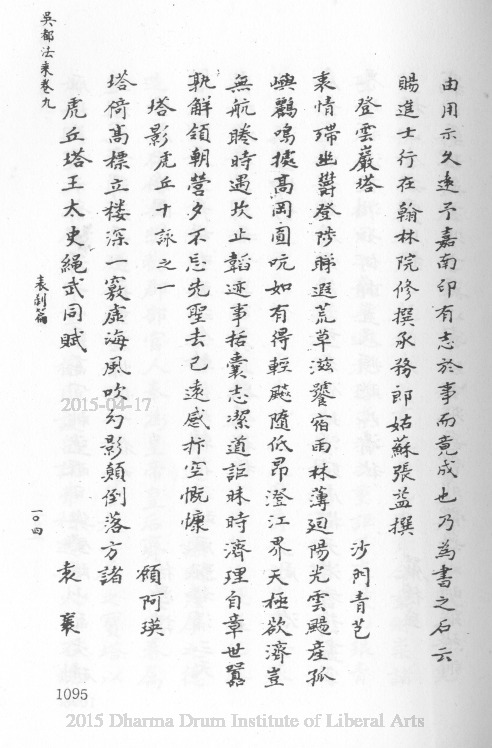 由用示久遠予嘉南印有志於事而竟成也乃為書之石云
賜進士行在翰林院修撰承務郎姑蘇張益撰
登雲巖塔
沙門青芒
衷情殢幽鬱登陟睇遐荒草滋饕宿雨林薄迴陽光雲颺産孤
嶼鸛鳴據高岡圓吭如有得輕飈隨低昂澄江界天極欲濟豈
無航睠時遇坎止韜迹事括囊志潔道詎昧時濟理自章世嚣
孰解領朝營夕不忘先聖去已遠感抃空慨慷
塔影虎丘十詠之一
顧阿瑛
塔倚髙標立楼深一竅虛海風吹勾影顛倒落方諸
虎丘塔王太史繩武同賦
袁袠
吳都法乗卷九
表刹篇
一〇四
1095
2015-04-17
2015 Dharma Drum Institute of Liberal Arts